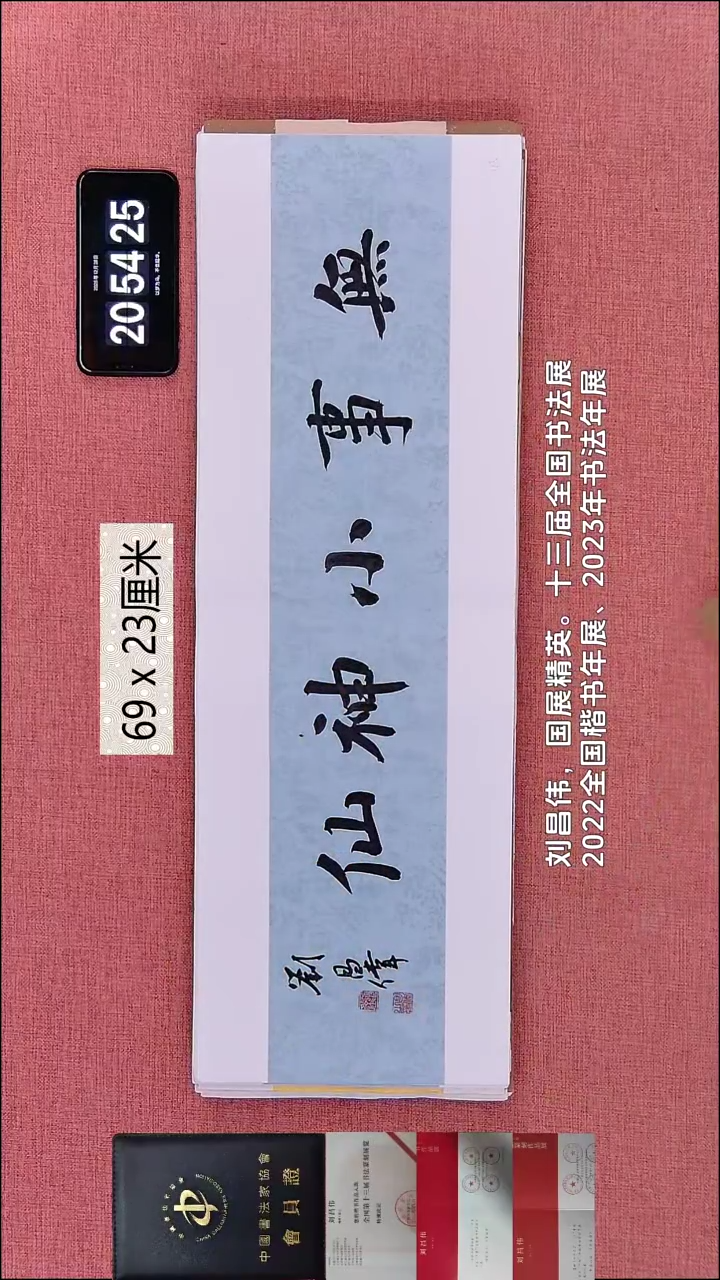 無事小神仙
劉昌偉
20 54 25
69 x 23厘米
刘昌伟，国展精英。十三届全国书法展
2022全国楷书年展、2023年书法年展
中國書法家協會
會員證
刘昌伟
全国第十三届书法篆刻展览
刘昌伟
刘昌伟